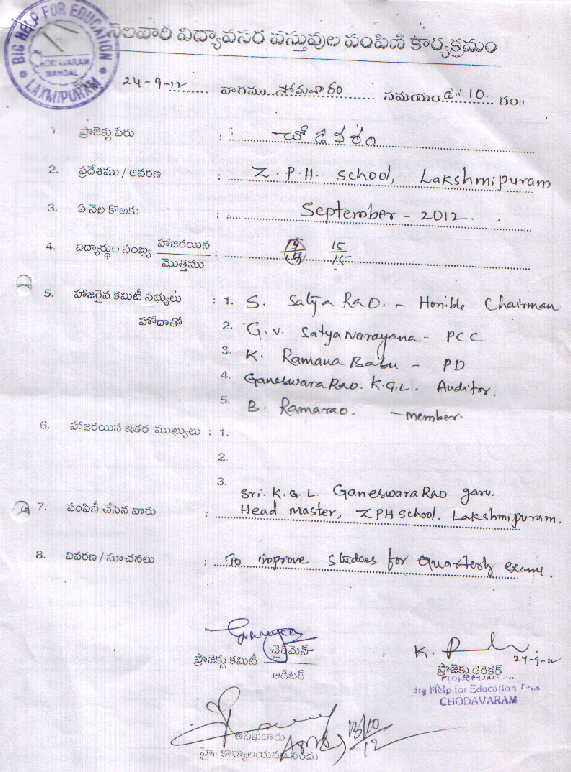 BIG HELP FOR EDUCATION
CHODAVARAM
MANDAL
LAXMIPURAM
నెలవారి విద్యావసర వస్తువుల పంపిణి కార్యక్రమం
24-9-12 వారము సోమవారం సమయం 10 గం॥
1. ప్రాజెక్టు పేరు : చోడవరం
2. ప్రదేశము / ఆవరణ : Z.P.H. School, Lakshmipuram
3. ఏ నెల కొఱకు : September - 2012.
4. విద్యార్థుల సంఖ్య హాజరయిన 15
మొత్తము 15
5. హాజరైన కమిటీ సభ్యులు : 1. S. Satya Rao. - Hon'ble Chairman
హోదాతో 2. G.V. Satya Narayana - PCC
3. K. Ramana Babu - PD
4. Ganeswara Rao. K.G.L. Auditor.
5. B. Ramarao. - member
6. హాజరయిన ఇతర ముఖ్యులు : 1.
2.
3.
7. పంపిణీ చేసిన వారు : Sri. K.G.L. Ganeswara Rao garu.
Head Master, ZPH School. Lakshmipuram.
8. వివరణ / సూచనలు : To improve studies for Quarterly exams.
ప్రాజెక్టు కమిటీ చైర్మెన్
ఆడిటర్
K. 24-9-12
ప్రాజెక్టు డైరెక్టర్
Big Help for Education Trust
CHODAVARAM
13/10
12